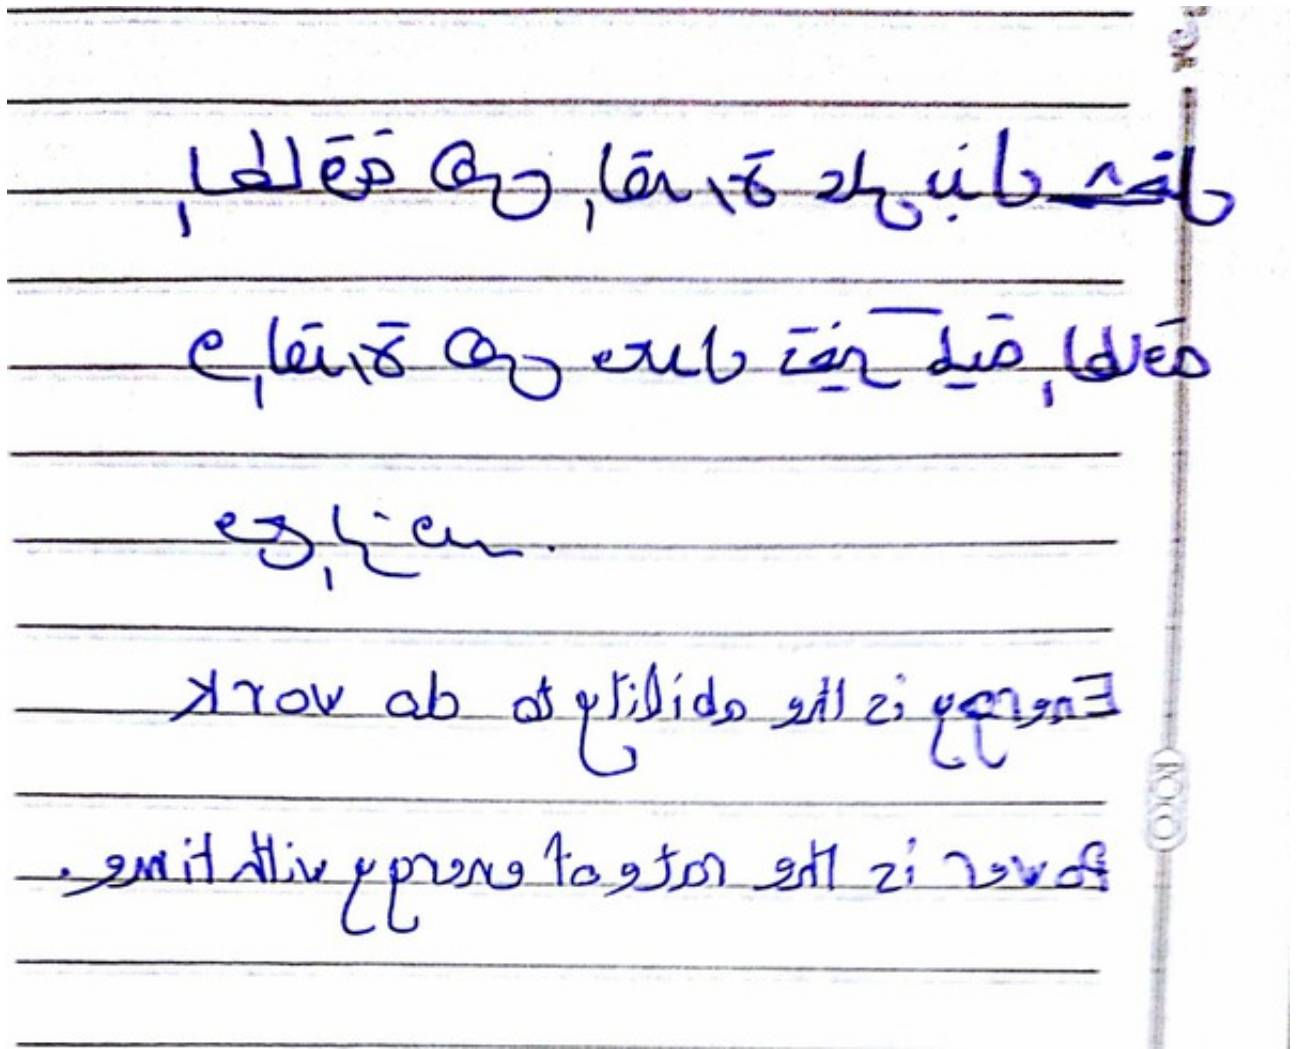 الطاقة هي القدرة على بذل شغل
القدرة هي معدل الطاقة
Energy is the ability to do work
Power is the rate of energy with time.
ROCO